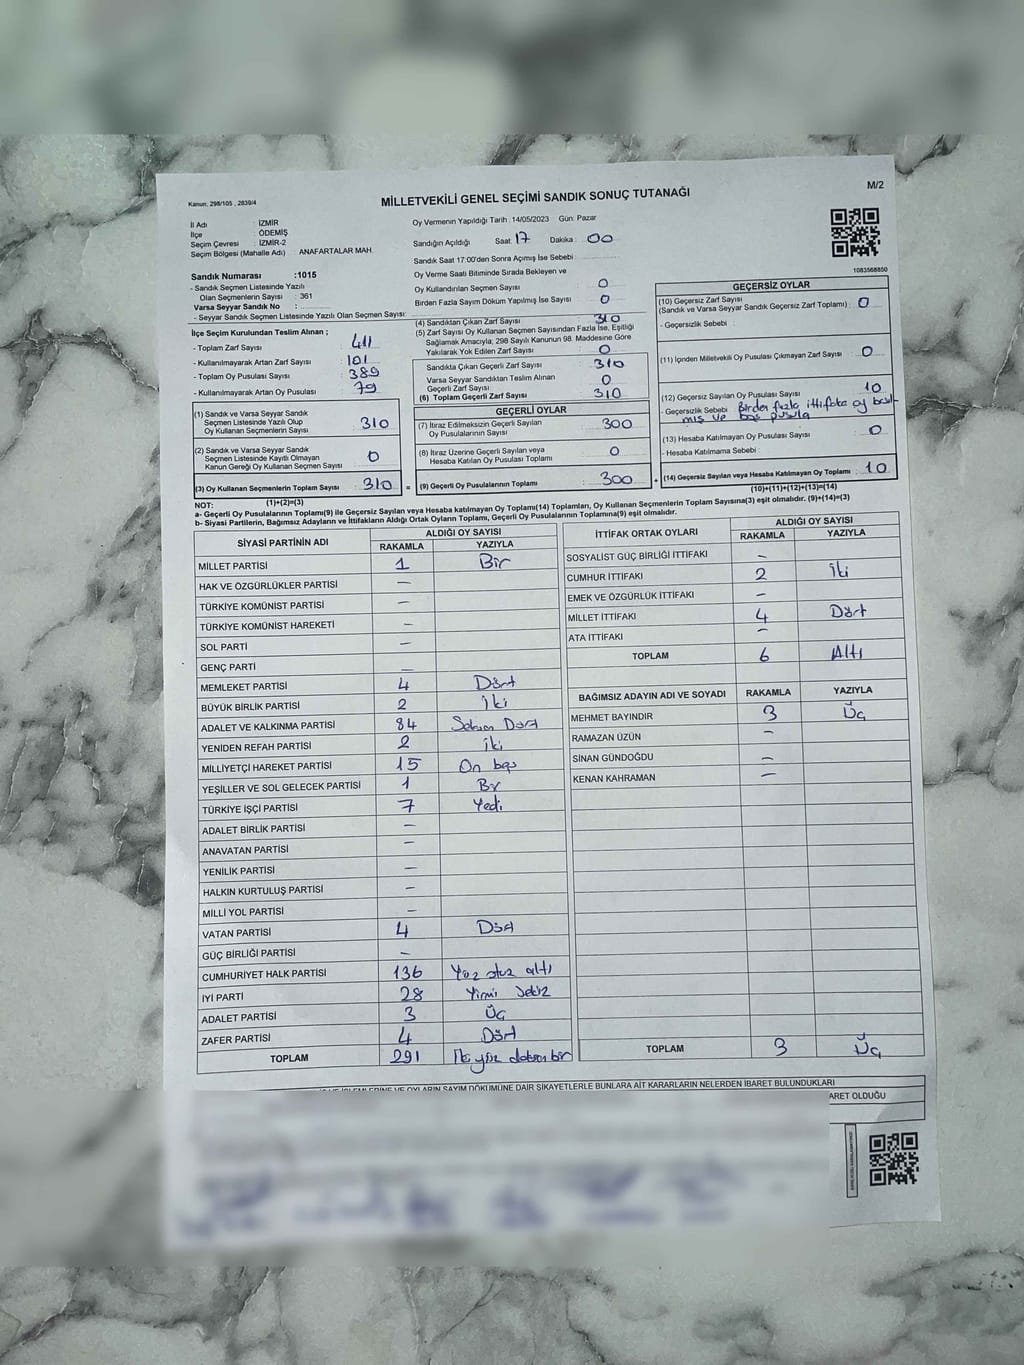 Kanun: 298/105 , 2839/4
MİLLETVEKİLİ GENEL SEÇİMİ SANDIK SONUÇ TUTANAĞI
M/2
İl Adı : İZMİR
İlçe : ÖDEMİŞ
Seçim Çevresi : İZMİR-2
Seçim Bölgesi (Mahalle Adı) ANAFARTALAR MAH.
Oy Vermenin Yapıldığı Tarih : 14/05/2023 Gün: Pazar
Sandığın Açıldığı Saat: 17 Dakika : 00
Sandık Saat 17:00'den Sonra Açımış İse Sebebi
Oy Verme Saati Bitiminde Sırada Bekleyen ve
Oy Kullandırılan Seçmen Sayısı : 0
Birden Fazla Sayım Döküm Yapılmış İse Sayısı : 0
1083568850
Sandık Numarası :1015
- Sandık Seçmen Listesinde Yazılı
Olan Seçmenlerin Sayısı : 361
Varsa Seyyar Sandık No :
- Seyyar Sandık Seçmen Listesinde Yazılı Olan Seçmen Sayısı:
İlçe Seçim Kurulundan Teslim Alınan ;
- Toplam Zarf Sayısı : 411
- Kullanılmayarak Artan Zarf Sayısı : 101
- Toplam Oy Pusulası Sayısı : 389
- Kullanılmayarak Artan Oy Pusulası : 79
(1) Sandık ve Varsa Seyyar Sandık
Seçmen Listesinde Yazılı Olup
Oy Kullanan Seçmenlerin Sayısı : 310
(2) Sandık ve Varsa Seyyar Sandık
Seçmen Listesinde Kayıtlı Olmayan
Kanun Gereği Oy Kullanan Seçmen Sayısı : 0
(3) Oy Kullanan Seçmenlerin Toplam Sayısı : 310 =
(1)+(2)=(3)
(4) Sandıktan Çıkan Zarf Sayısı : 310
(5) Zarf Sayısı Oy Kullanan Seçmen Sayısından Fazla İse, Eşitliği
Sağlamak Amacıyla; 298 Sayılı Kanunun 98. Maddesine Göre
Yakılarak Yok Edilen Zarf Sayısı : 0
Sandıkta Çıkan Geçerli Zarf Sayısı : 310
Varsa Seyyar Sandıktan Teslim Alınan
Geçerli Zarf Sayısı : 0
(6) Toplam Geçerli Zarf Sayısı : 310
GEÇERLİ OYLAR
(7) İtiraz Edilmeksizin Geçerli Sayılan
Oy Pusulalarının Sayısı : 300
(8) İtiraz Üzerine Geçerli Sayılan veya
Hesaba Katılan Oy Pusulası Toplamı : 0
(9) Geçerli Oy Pusulalarının Toplamı : 300 +
GEÇERSİZ OYLAR
(10) Geçersiz Zarf Sayısı
(Sandık ve Varsa Seyyar Sandık Geçersiz Zarf Toplamı) : 0
- Geçersizlik Sebebi :
(11) İçinden Milletvekili Oy Pusulası Çıkmayan Zarf Sayısı : 0
(12) Geçersiz Sayılan Oy Pusulası Sayısı : 10
- Geçersizlik Sebebi Birden fazla ittifaka oy basıl
mış ve boş pusula
(13) Hesaba Katılmayan Oy Pusulası Sayısı : 0
- Hesaba Katılmama Sebebi :
(14) Geçersiz Sayılan veya Hesaba Katılmayan Oy Toplamı : 10
(10)+(11)+(12)+(13)=(14)
NOT:
a- Geçerli Oy Pusulalarının Toplamı(9) ile Geçersiz Sayılan veya Hesaba katılmayan Oy Toplamı(14) Toplamları, Oy Kullanan Seçmenlerin Toplam Sayısına(3) eşit olmalıdır. (9)+(14)=(3)
b- Siyasi Partilerin, Bağımsız Adayların ve İttifakların Aldığı Ortak Oyların Toplamı, Geçerli Oy Pusulalarının Toplamına(9) eşit olmalıdır.
SİYASİ PARTİNİN ADI ALDIĞI OY SAYISI
RAKAMLA YAZIYLA
MİLLET PARTİSİ 1 Bir
HAK VE ÖZGÜRLÜKLER PARTİSİ —
TÜRKİYE KOMÜNİST PARTİSİ —
TÜRKİYE KOMÜNİST HAREKETİ —
SOL PARTİ —
GENÇ PARTİ —
MEMLEKET PARTİSİ 4 Dört
BÜYÜK BİRLİK PARTİSİ 2 İki
ADALET VE KALKINMA PARTİSİ 84 Seksen Dört
YENİDEN REFAH PARTİSİ 2 İki
MİLLİYETÇİ HAREKET PARTİSİ 15 On beş
YEŞİLLER VE SOL GELECEK PARTİSİ 1 Bir
TÜRKİYE İŞÇİ PARTİSİ 7 Yedi
ADALET BİRLİK PARTİSİ —
ANAVATAN PARTİSİ —
YENİLİK PARTİSİ —
HALKIN KURTULUŞ PARTİSİ —
MİLLİ YOL PARTİSİ —
VATAN PARTİSİ 4 Dört
GÜÇ BİRLİĞİ PARTİSİ —
CUMHURİYET HALK PARTİSİ 136 Yüz otuz altı
İYİ PARTİ 28 Yirmi Sekiz
ADALET PARTİSİ 3 Üç
ZAFER PARTİSİ 4 Dört
TOPLAM 291 İki yüz doksan bir
İTTİFAK ORTAK OYLARI ALDIĞI OY SAYISI
RAKAMLA YAZIYLA
SOSYALİST GÜÇ BİRLİĞİ İTTİFAKI —
CUMHUR İTTİFAKI 2 İki
EMEK VE ÖZGÜRLÜK İTTİFAKI —
MİLLET İTTİFAKI 4 Dört
ATA İTTİFAKI —
TOPLAM 6 Altı
BAĞIMSIZ ADAYIN ADI VE SOYADI RAKAMLA YAZIYLA
MEHMET BAYINDIR 3 Üç
RAMAZAN ÜZÜN —
SİNAN GÜNDOĞDU —
KENAN KAHRAMAN —
TOPLAM 3 Üç
VE OYLARIN SAYIM DÖKÜMÜNE DAİR ŞİKAYETLERLE BUNLARA AİT KARARLARIN NELERDEN İBARET BULUNDUKLARI
ARET OLDUĞU